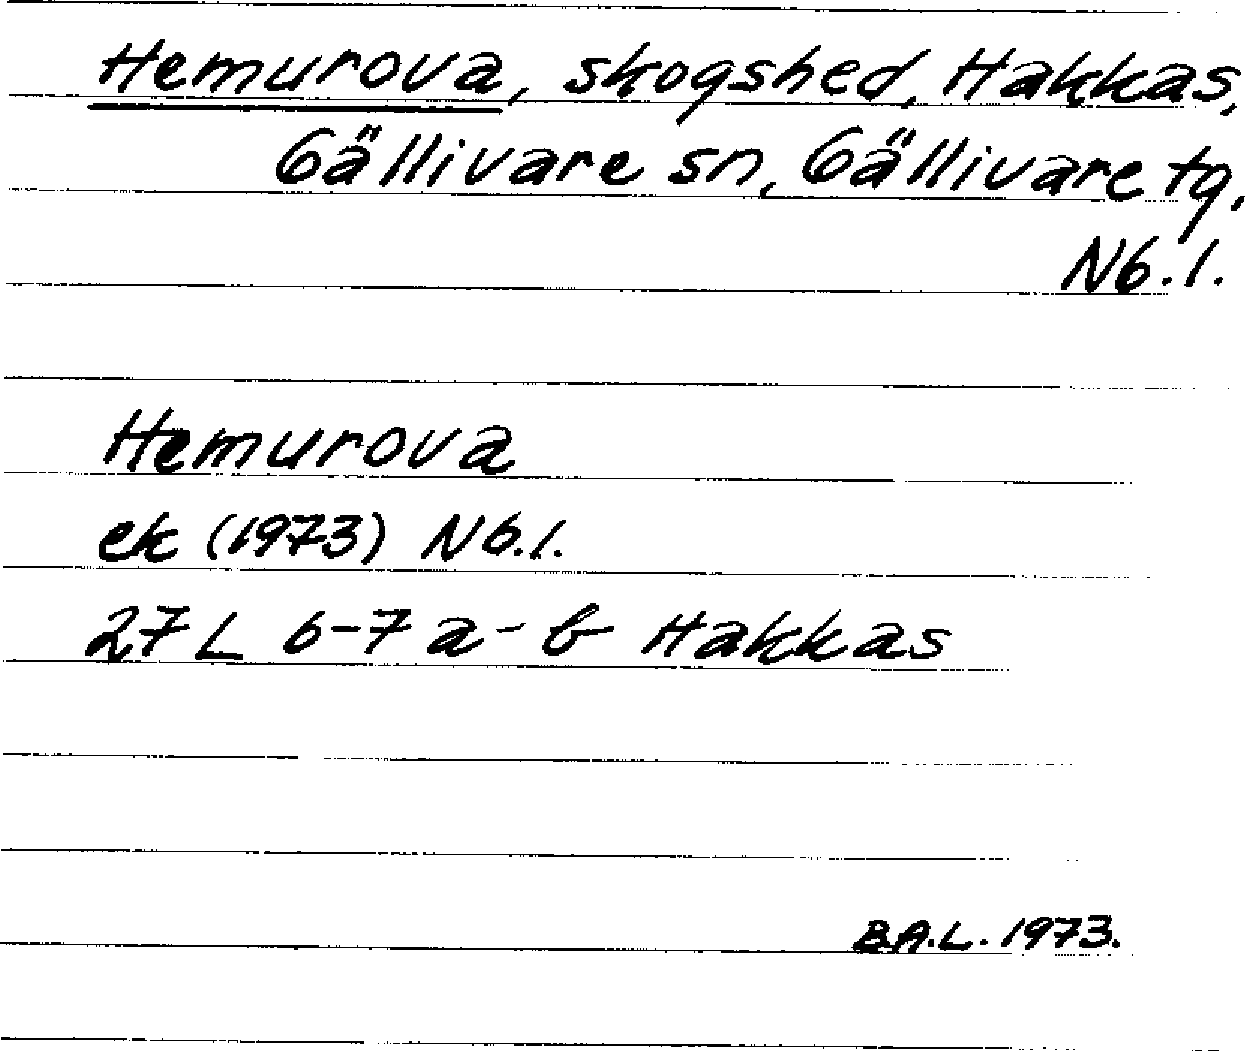 Hemurova, skogshed, Hakkas,
Gällivare sn, Gällivare tg,
Nb. l.
Hemurova
ek (1973) Nb. l.
27 L 6-7 a-b Hakkas
B.A.L. 1973.